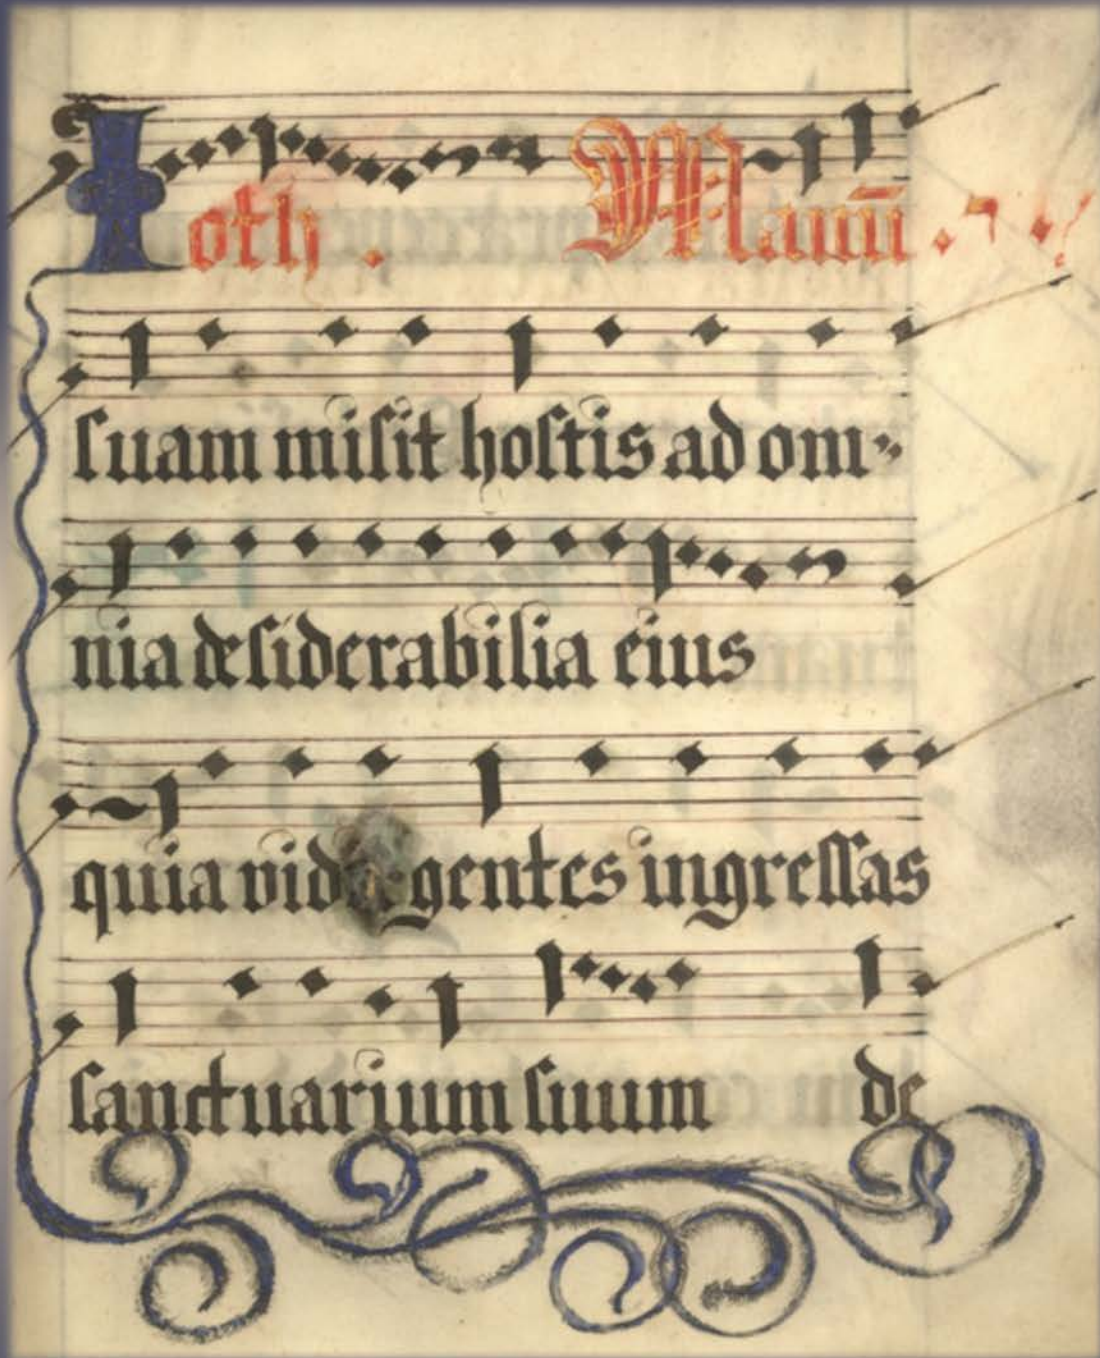 Ioth . Manū .
ſuam miſit hoſtis ad om-
nia deſiderabilia eius
quia gentes ingreſſas
ſanctuarium ſuum de